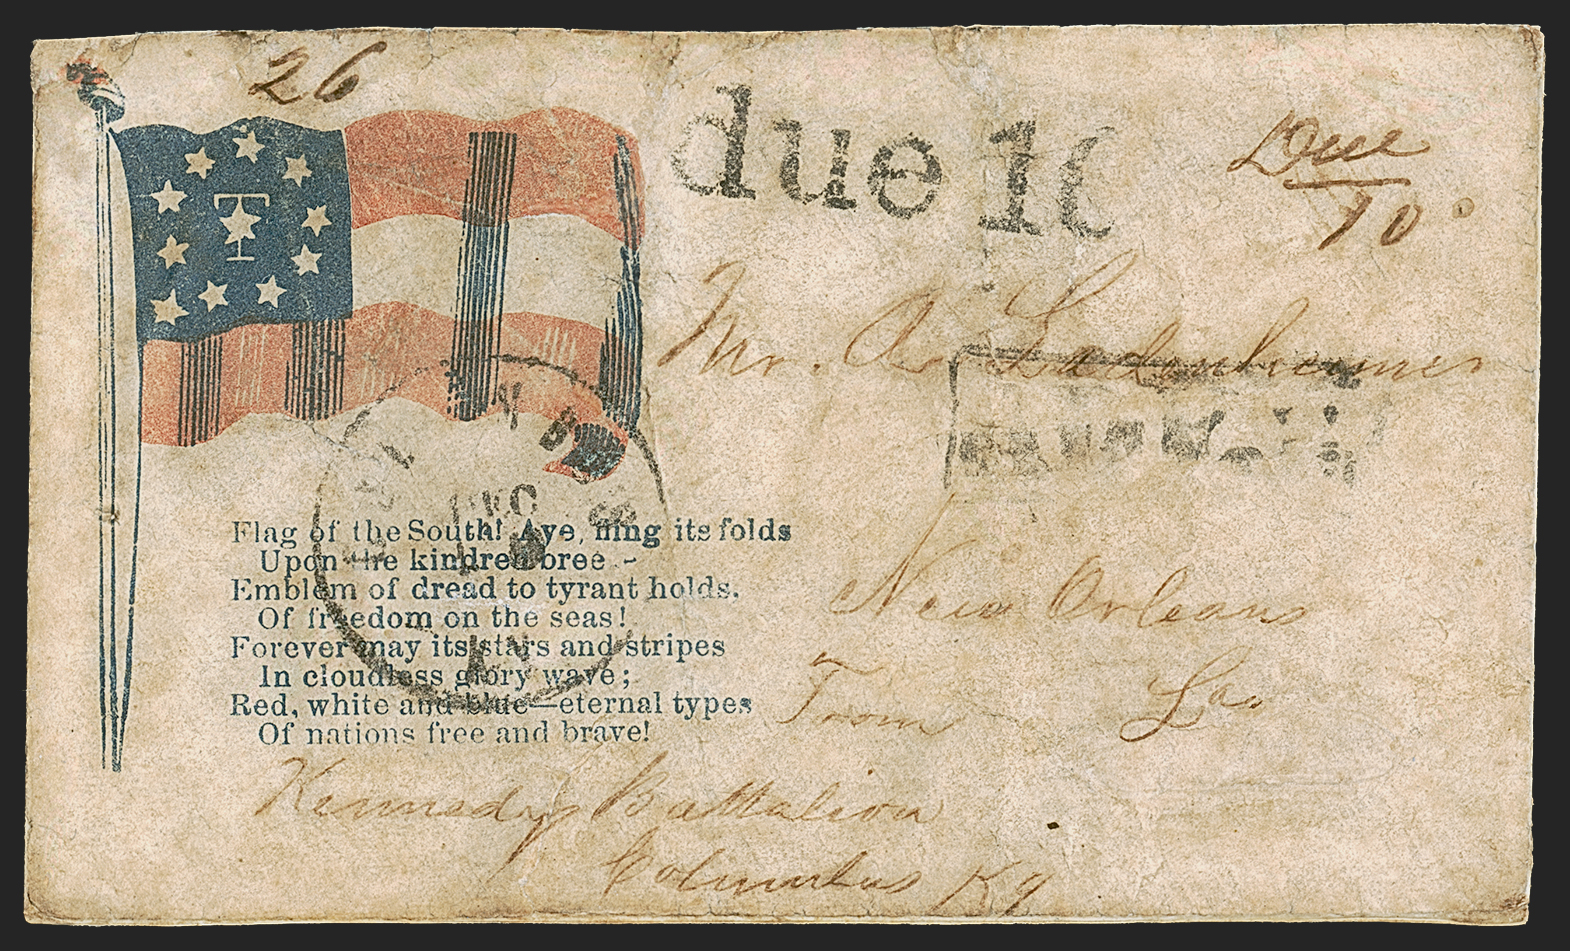 26
due 10
Due
10
T
Mr. A. Ladenheimer
Flag of the South! Aye, fling its folds
Upon the kindred bree -
Emblem of dread to tyrant holds.
Of freedom on the seas!
Forever may its stars and stripes
In cloudless glory wave;
Red, white and blue—eternal types
Of nations free and brave!
DEC
KY
New Orleans
La.
From
Kennedy Battalion
Columbus Ky